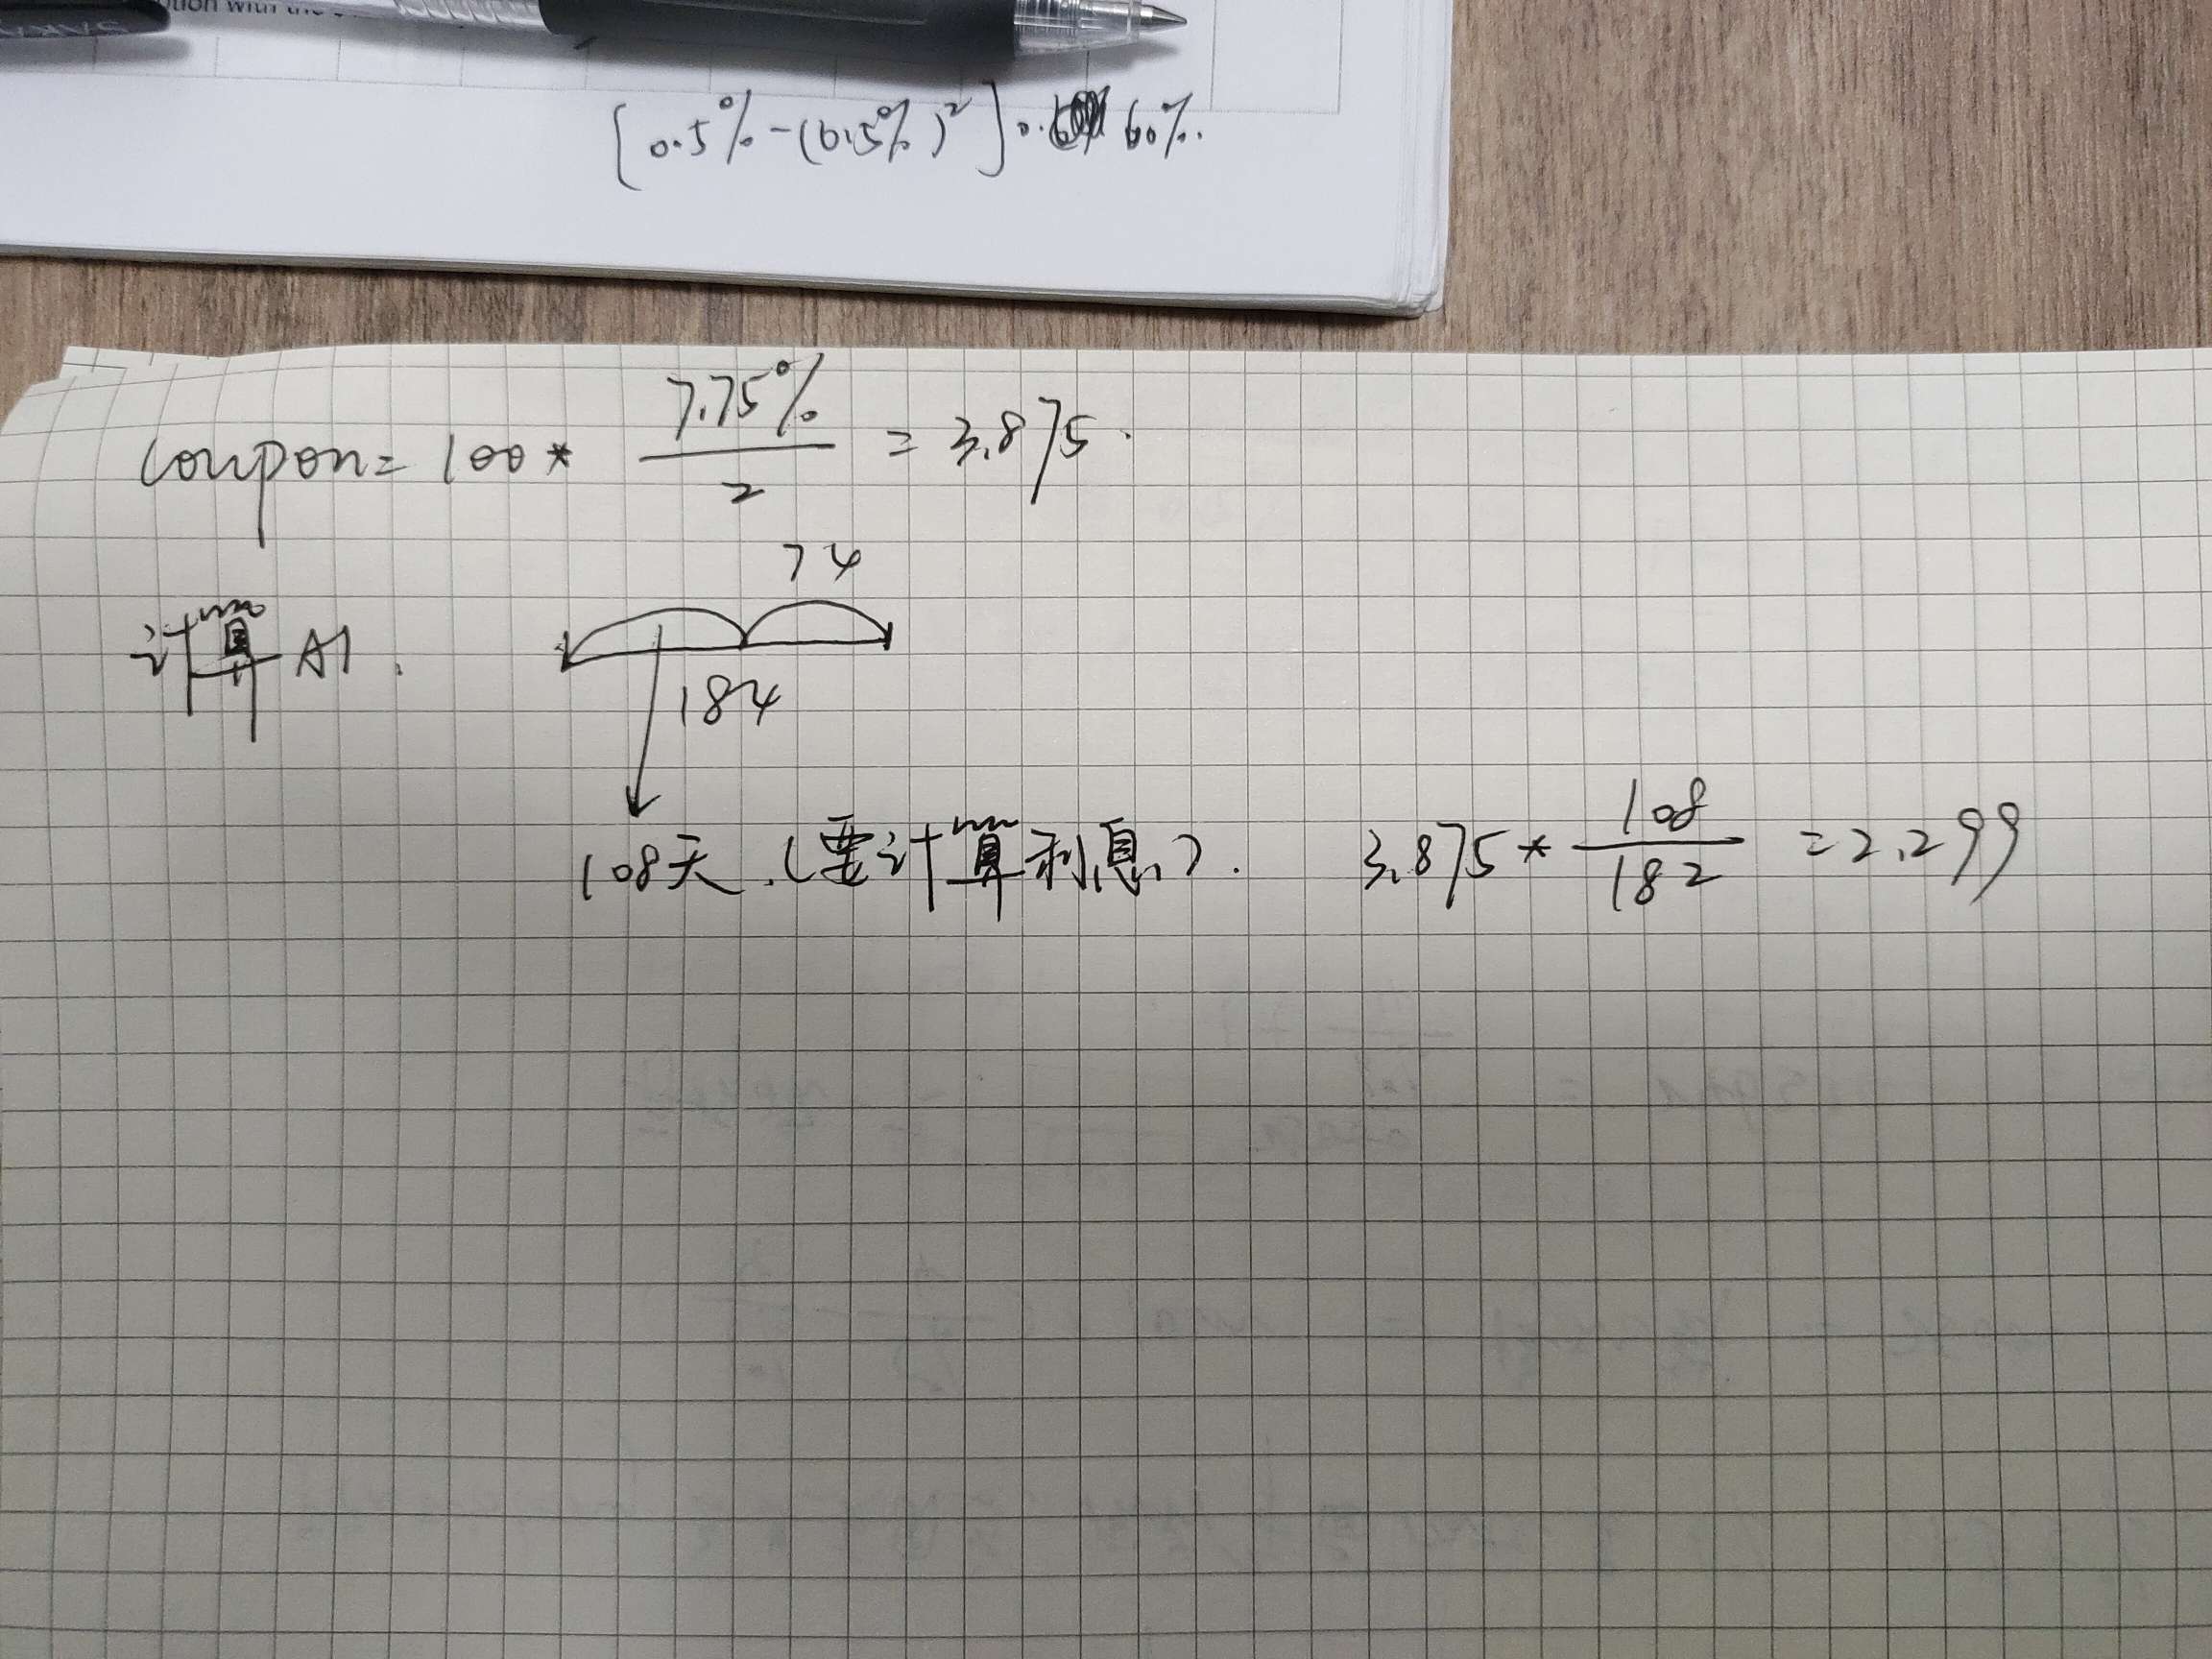 tion with the
[0.5%-(0.5%)²]0.6 60%.
coupon = 100 * 7.75%/2 = 3.875.
74
计算 AI.
184
108天.(要计算利息.). 3.875 * 108/182 = 2.299